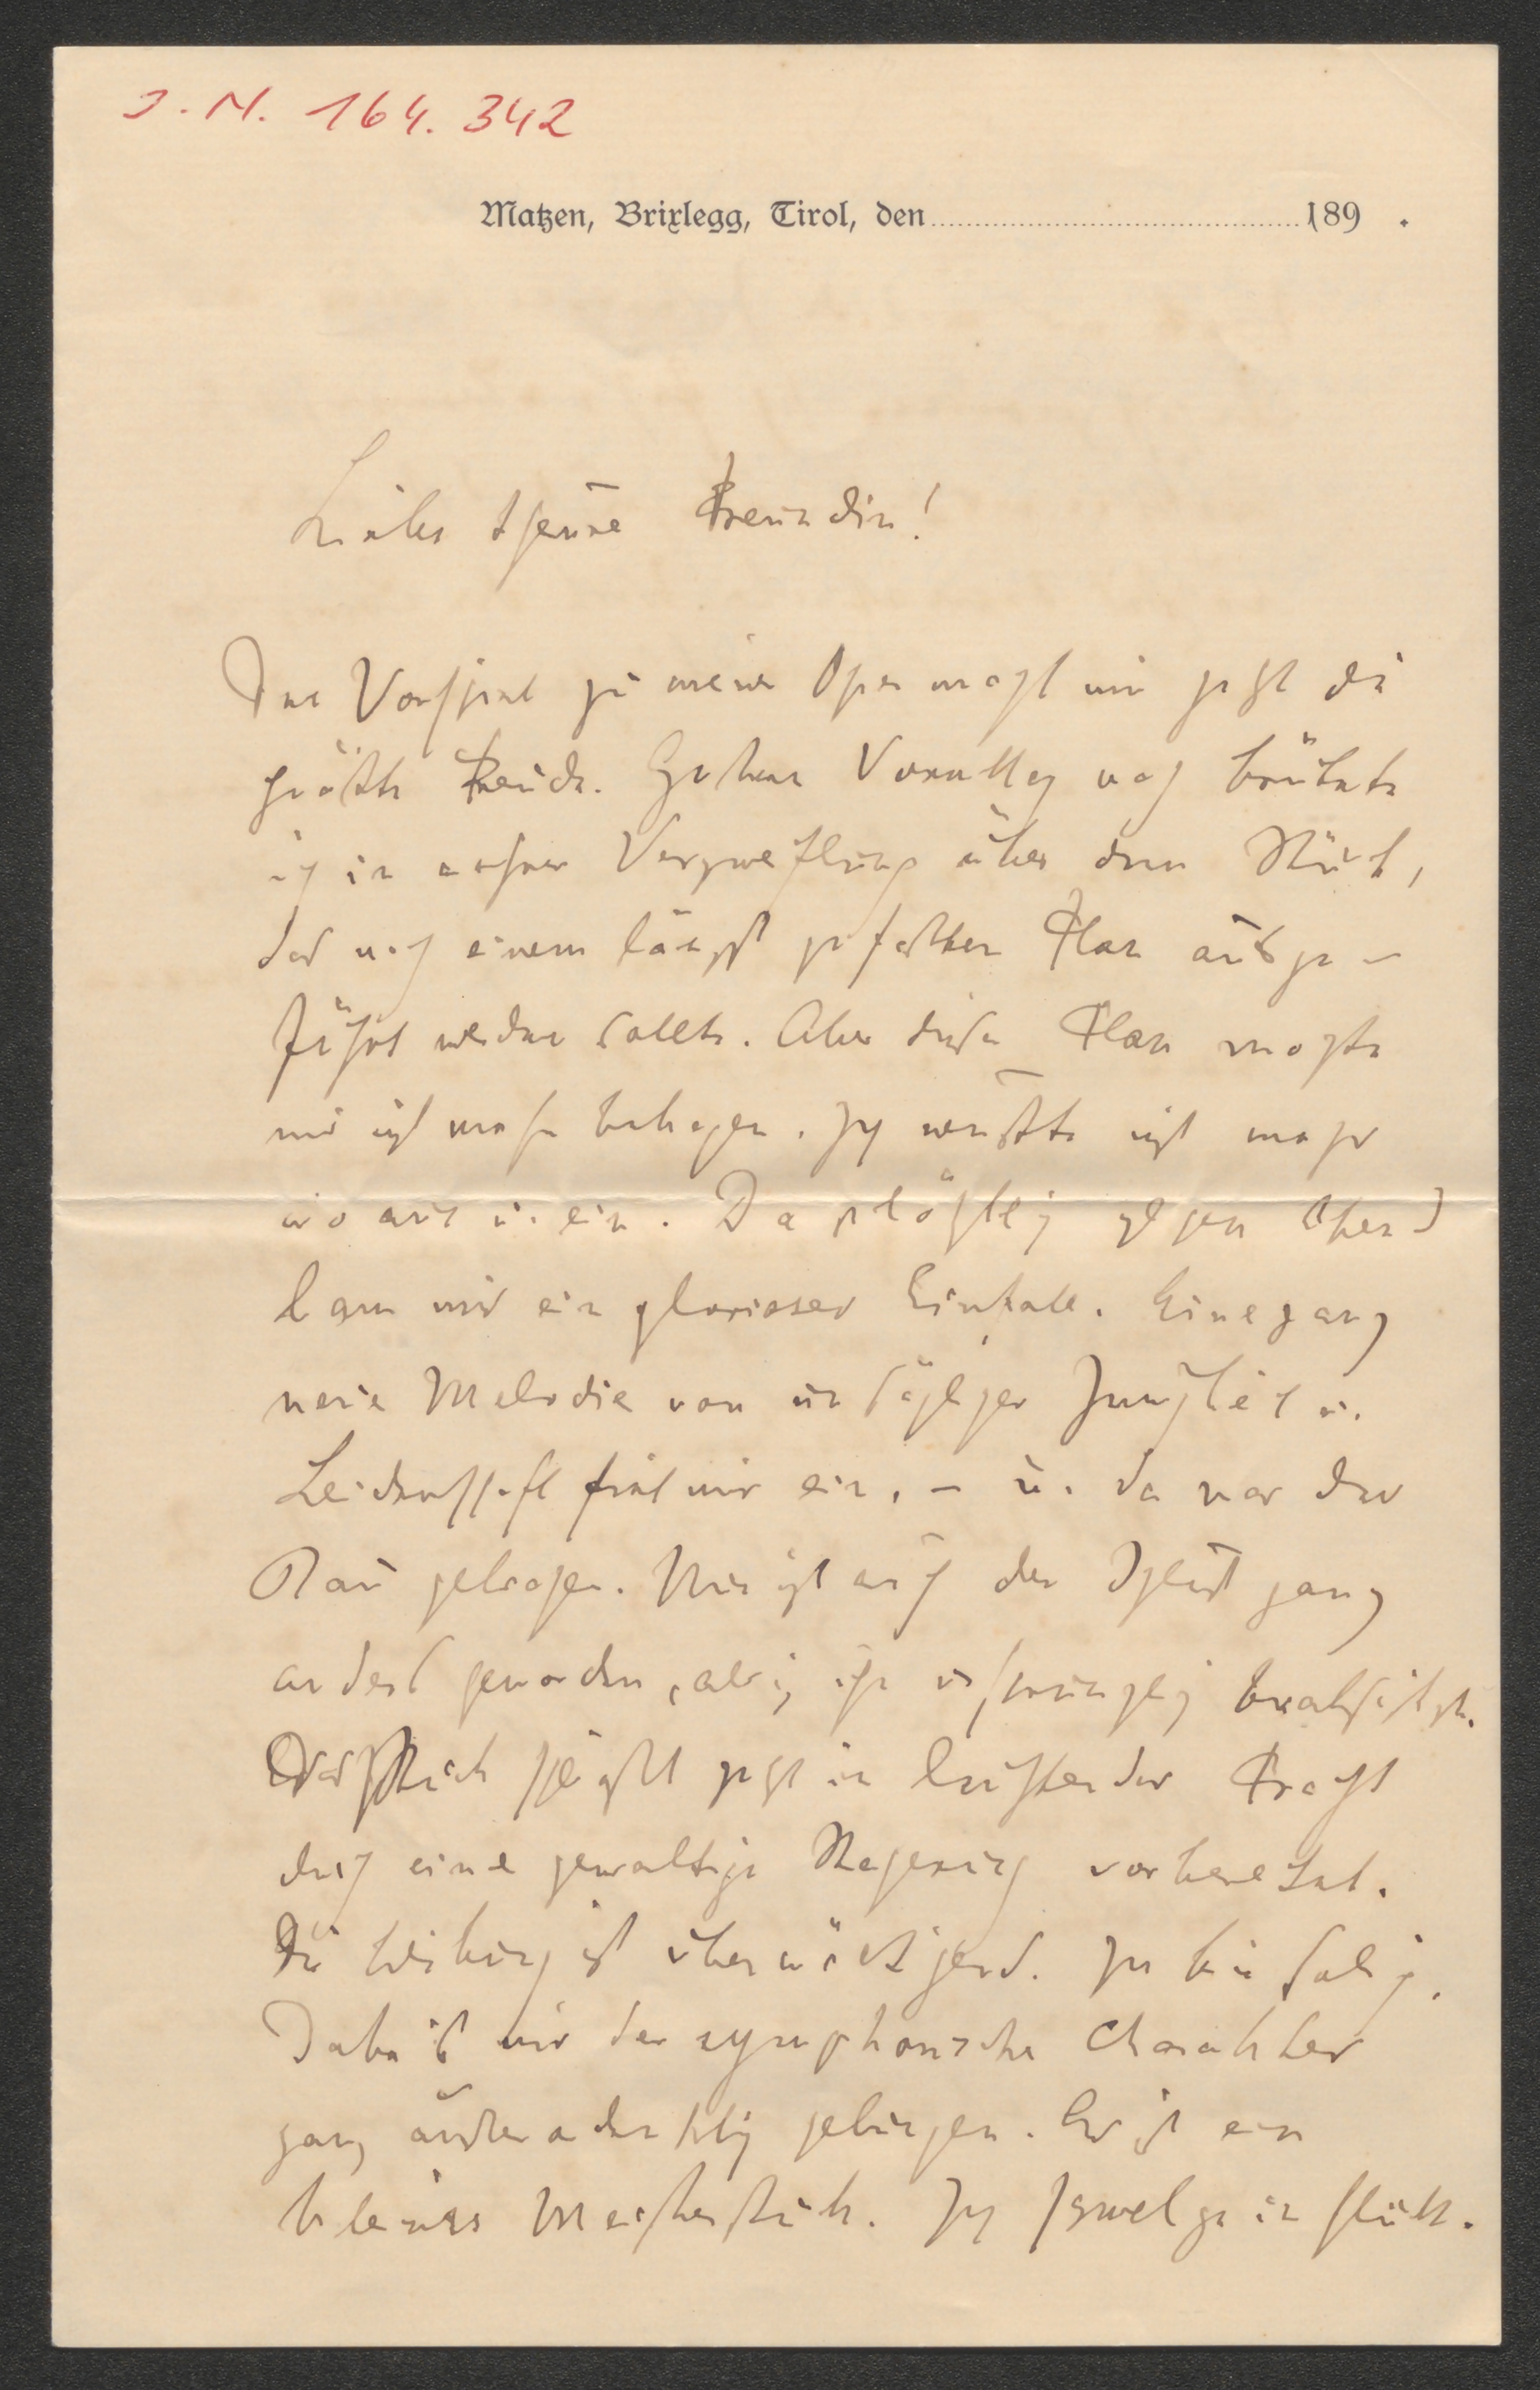 J. N. 164.342
Matzen, Brixlegg, Tirol, den 189 .
Liebe theure Freundin!
Das Vorspiel zu meiner Oper macht mir jetzt die
größte Freude. Gestern Vormittag noch brütete
ich in wahrer Verzweiflung über dem Stück,
das nach einem längst gefaßten Plan ausge-
führt werden sollte. Aber dieser Plan mochte
mir nicht mehr behagen. Ich wußte nicht mehr
wo aus u. ein. Da plötzlich gegen Abend
kam mir ein glorioser Einfall. Eine ganz
neue Melodie von unsäglicher Innigkeit u.
Leidenschaft fiel mir ein, – u. da war der
Bau gebrochen. Nun ist auch der Schluß ganz
anders geworden, als ich ihn ursprünglich beabsichtigte.
Das Stück schließt jetzt in leuchtender Pracht
durch eine gewaltige Steigerung vorbereitet.
Die Wirkung ist überwältigend. Ich bin selig.
Dabei ist mir der symphonische Charakter
ganz außerordentlich gelungen. Es ist ein
kleines Meisterstück. Ich schwelge in Glück.